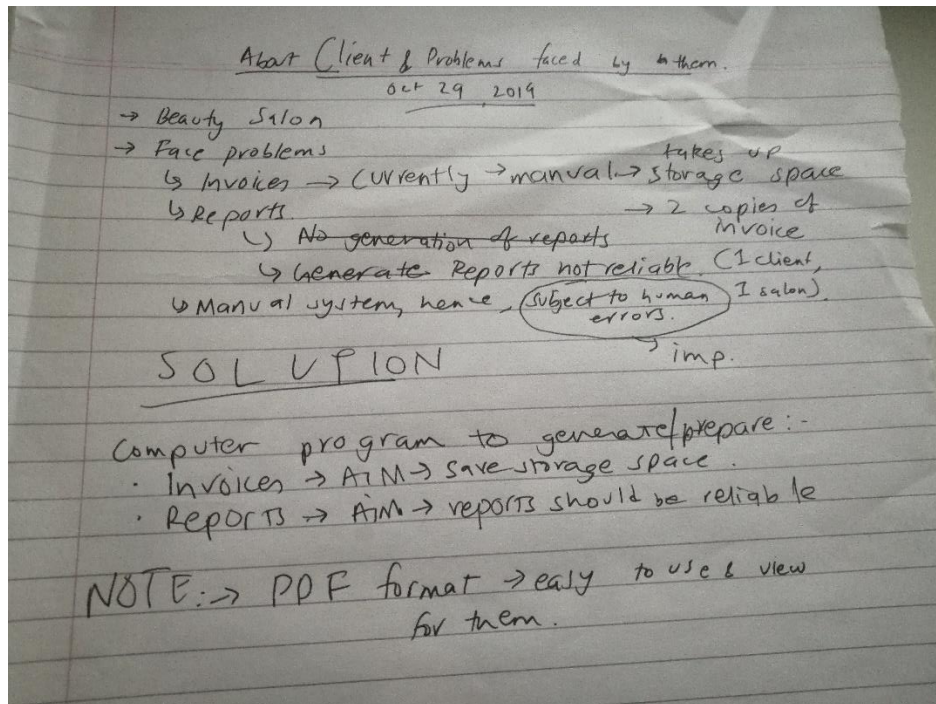 About Client & Problems faced by them.
Oct 29 2019
→ Beauty Salon
→ Face problems
↳ Invoices → Currently → manual → takes up storage space
→ 2 copies of invoice (1 client, 1 salon).
↳ Reports
↳ No generation of reports
↳ Generate Reports not reliable
↳ Manual system, hence, subject to human errors.
↳ imp.
SOLUTION
Computer program to generate/prepare:-
· Invoices → AIM → save storage space.
· Reports → AIM → reports should be reliable
NOTE:→ PDF format → easy to use & view
for them.